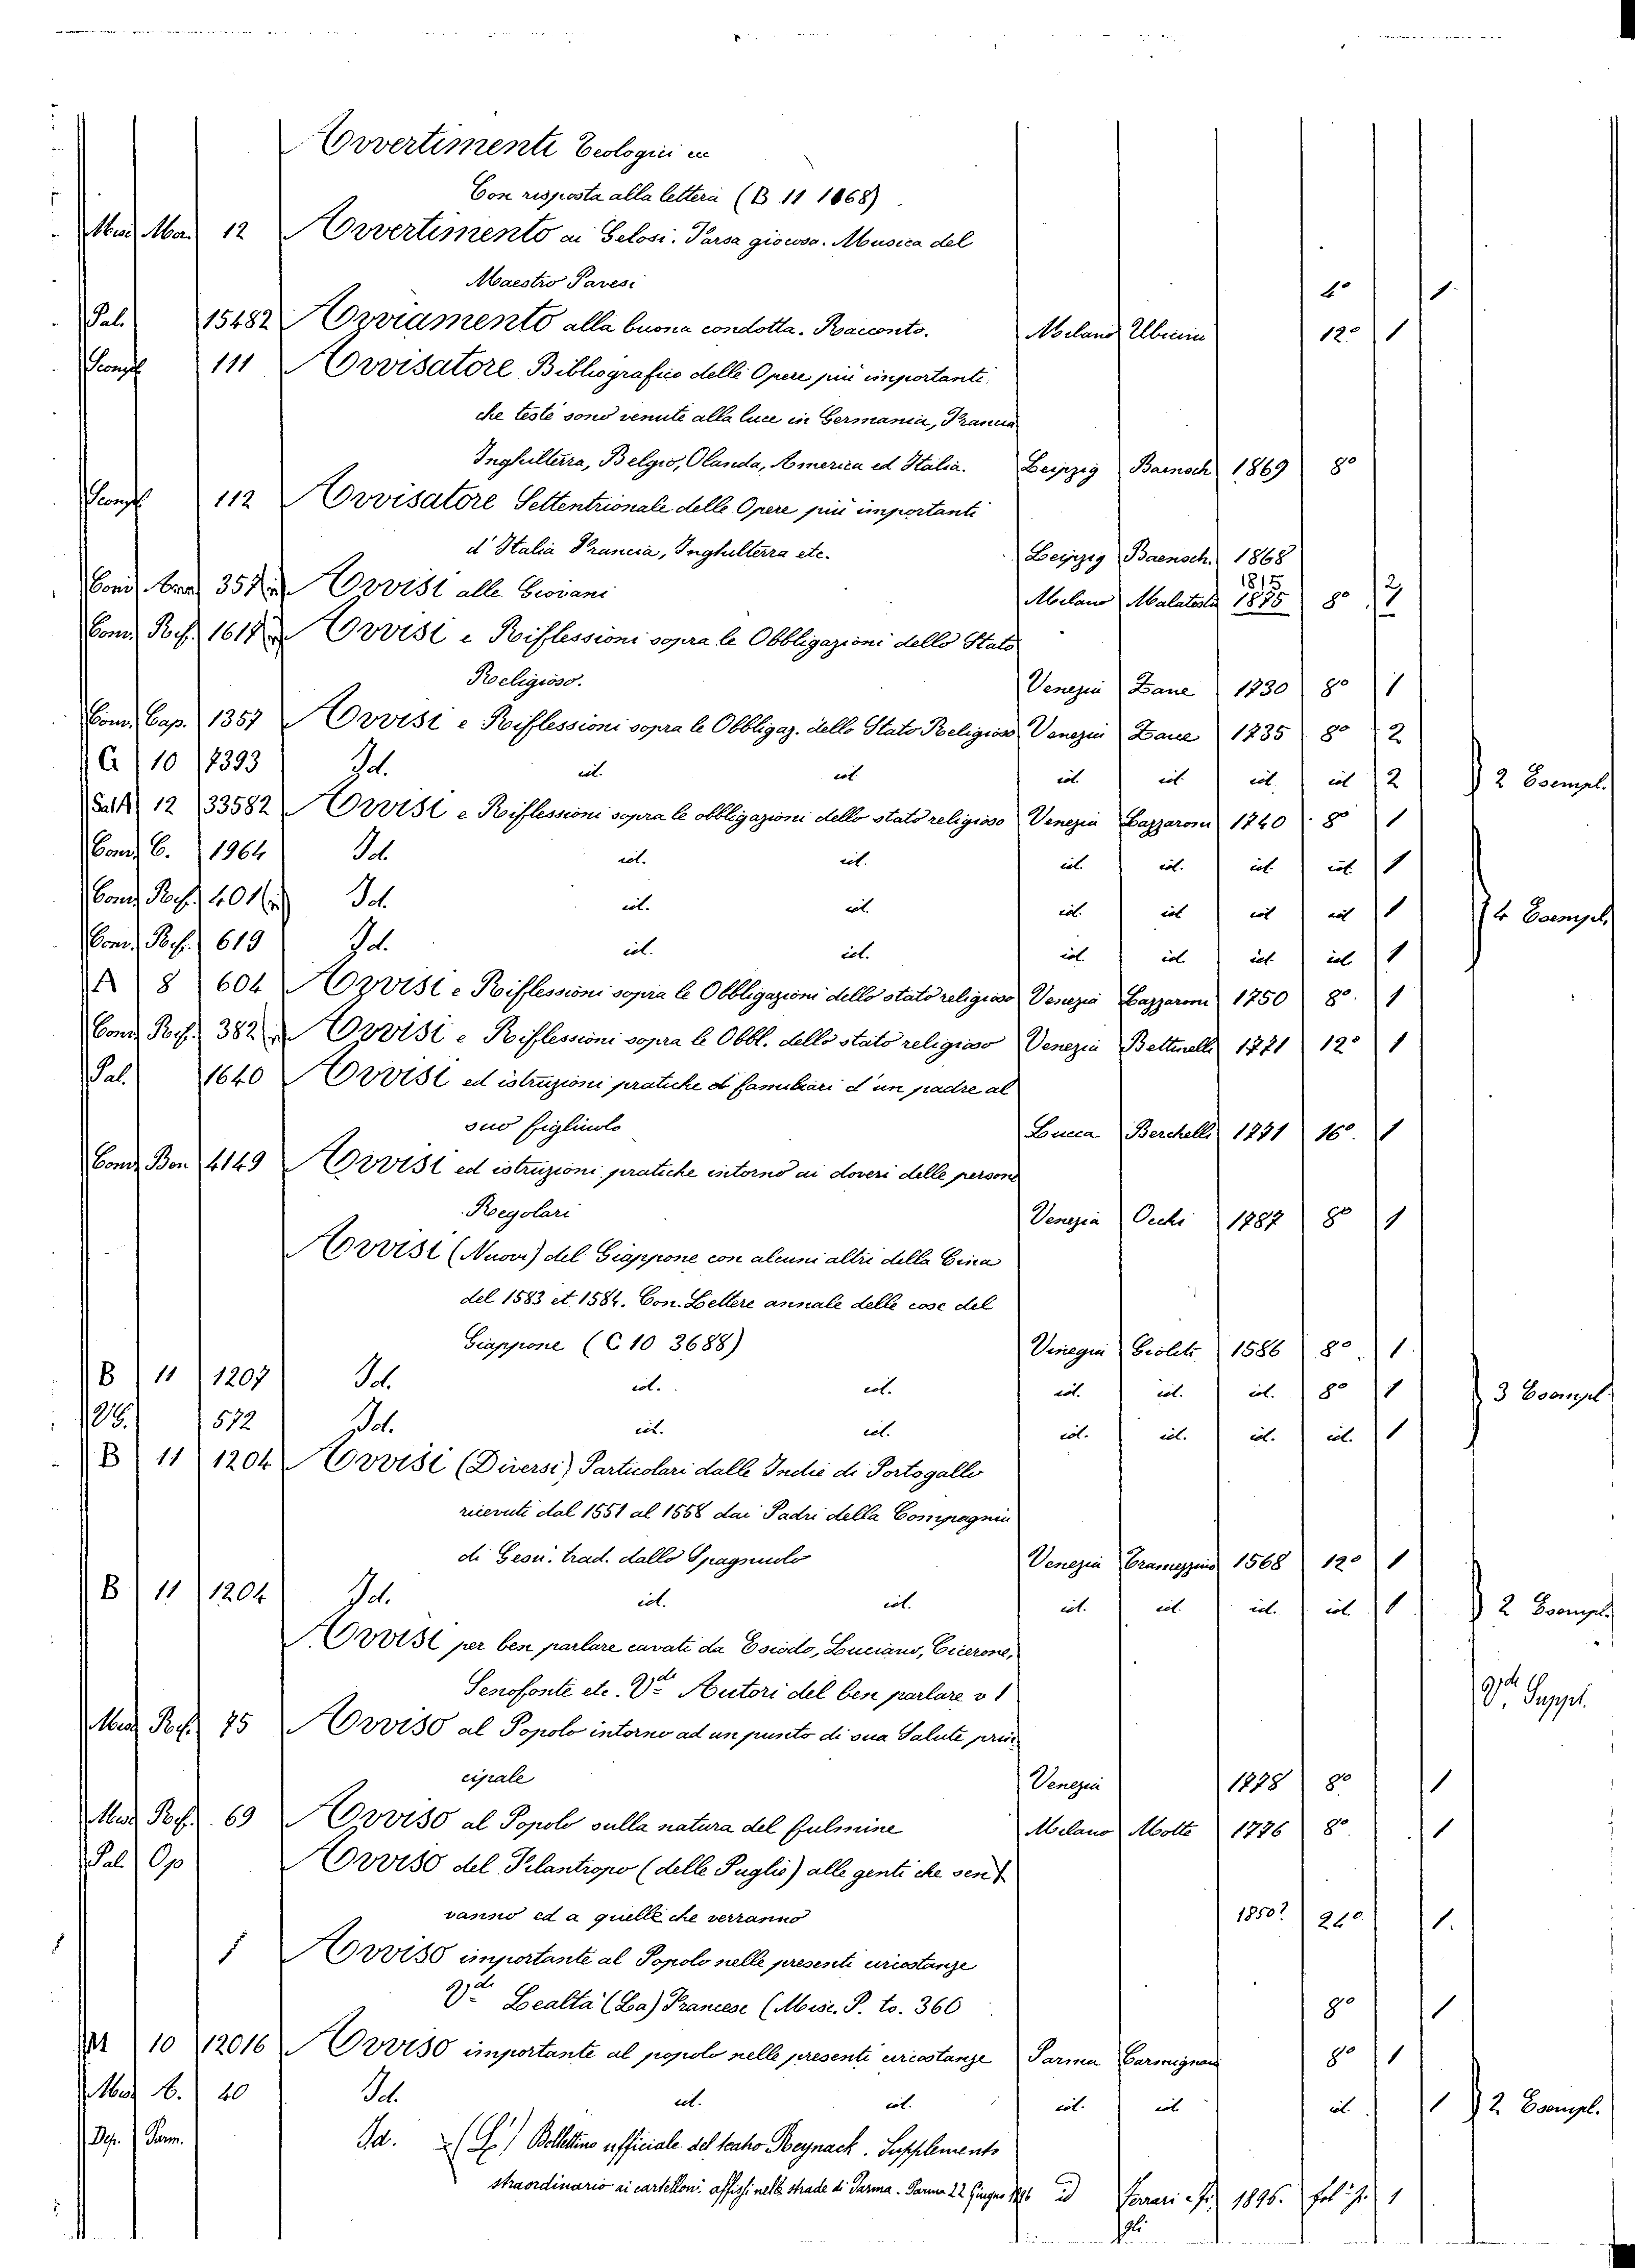 Avvertimenti Teologici in
Con risposta alla lettera (B 11 1068)
Misc. Mor. 12 Avvertimento ai Gelosi. Farsa giocosa. Musica del
Maestro Pavesi 4° 1
Pal. 15482 Avviamento alla buona condotta. Racconto. Milano Ubicini 12° 1
111 Avvisatore Bibliografico delle Opere più importanti
che testè sono venute alla luce in Germania, Francia
Inghilterra, Belgio, Olanda, America ed Italia. Leipzig Baensch 1869 8°
112 Avvisatore Settentrionale delle Opere più importanti
d'Italia Francia, Inghilterra etc. Leipzig Baensch. 1868
1815 2
357 Avvisi alle Giovani Milano Malatesta 1875 8° 1
Conv. Rif. 1617 Avvisi e Riflessioni sopra le Obbligazioni dello Stato
Religioso. Venezia Zane 1730 8° 1
Conv. Cap. 1357 Avvisi e Riflessioni sopra le Obbligaz. dello Stato Religioso Venezia Zane 1735 8° 2
G 10 7393 Id. id. id. id. id. id. id. 2 2 Esempl.
12 33582 Avvisi e Riflessioni sopra le obbligazioni dello stato religioso Venezia Bazzaroni 1740 8° 1
Conv. C. 1964 Id. id. id. id. id. id. id. 1
Conv. Rif. 401 Id. id. id. id. id. id. id. 1 4 Esempl.
Conv. Rif. 619 Id. id. id. id. id. id. id. 1
A 8 604 Avvisi e Riflessioni sopra le Obbligazioni dello stato religioso Venezia Bazzaroni 1750 8° 1
Conv. Rif. 382 Avvisi e Riflessioni sopra le Obbl. dello stato religioso Venezia Bettinelli 1771 12° 1
Pal. 1640 Avvisi ed istruzioni pratiche e famigliari d'un padre al
suo figliuolo Lucca Berchelli 1771 16°. 1
Conv. Ben 4149 Avvisi ed istruzioni pratiche intorno ai doveri delle persone
Regolari Venezia Occhi 1787 8° 1
Avvisi (Nuovi) del Giappone con alcuni altri della Cina
del 1583 et 1584. Con Lettere annale delle cose del
Giappone (C 10 3688) Vinegia Gioliti 1586 8°. 1
B 11 1207 Id. id. id. id. id. id. 8° 1 3 Esempl.
572 Id. id. id. id. id. id. id. 1
B 11 1204 Avvisi (Diversi) Particolari dalle Indie di Portogallo
ricevuti dal 1551 al 1558 dai Padri della Compagnia
di Gesù. trad. dallo Spagnuolo Venezia Tramezzino 1568 12° 1
B 11 1204 Id. id. id. id. id. id. id. 1 2 Esempl.
Avvisi per ben parlare cavati da Esiodo, Luciano, Cicerone,
Senofonte etc. Vde Autori del ben parlare v 1 Vde Suppl.
Misc. Rif. 75 Avviso al Popolo intorno ad un punto di sua Salute prin
cipale Venezia 1778 8° 1
Misc. Rif. 69 Avviso al Popolo sulla natura del fulmine Milano Motta 1776 8° 1
Pal. Op Avviso del Filantropo (delle Puglie) alle genti che sen
vanno ed a quelle che verranno 1850? 24° 1.
1 Avviso importante al Popolo nelle presenti circostanze
Vde Lealtà (La) Francese (Misc. P. to. 360 8° 1
M 10 12016 Avviso importante al popolo nelle presenti circostanze Parma Carmignani 8° 1
Misc. 40 Id. id. id. id. id. id. 1 2 Esempl.
Dep. Parm. Id. (L') Bollettino ufficiale del teatro Reynach. Supplemento
straordinario ai cartelloni affissi nelle strade di Parma. Parma 22 Giugno 1896 id Ferrari e fi 1896. fol. f. 1
gli